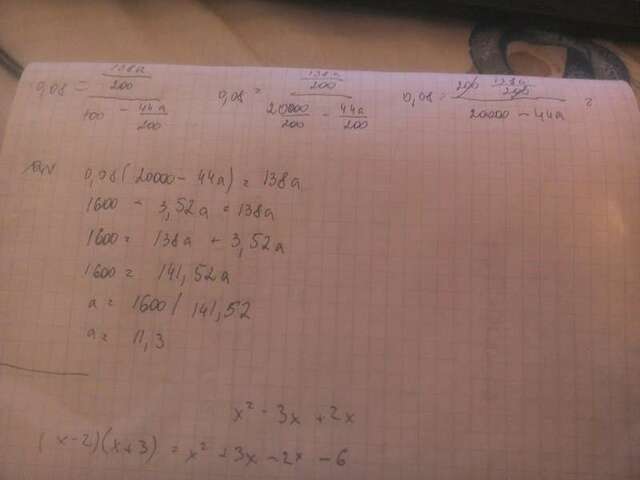 0,08 = (138a/200) / (100 - 44a/200)   0,08 = (138a/200) / (20000/200 - 44a/200)   0,08 = (200 138a/200) / (20000 - 44a) =
0,08(20000 - 44a) = 138a
1600 - 3,52a = 138a
1600 = 138a + 3,52a
1600 = 141,52a
a = 1600 / 141,52
a = 11,3
x² - 3x + 2x
(x-2)(x+3) = x² + 3x - 2x - 6